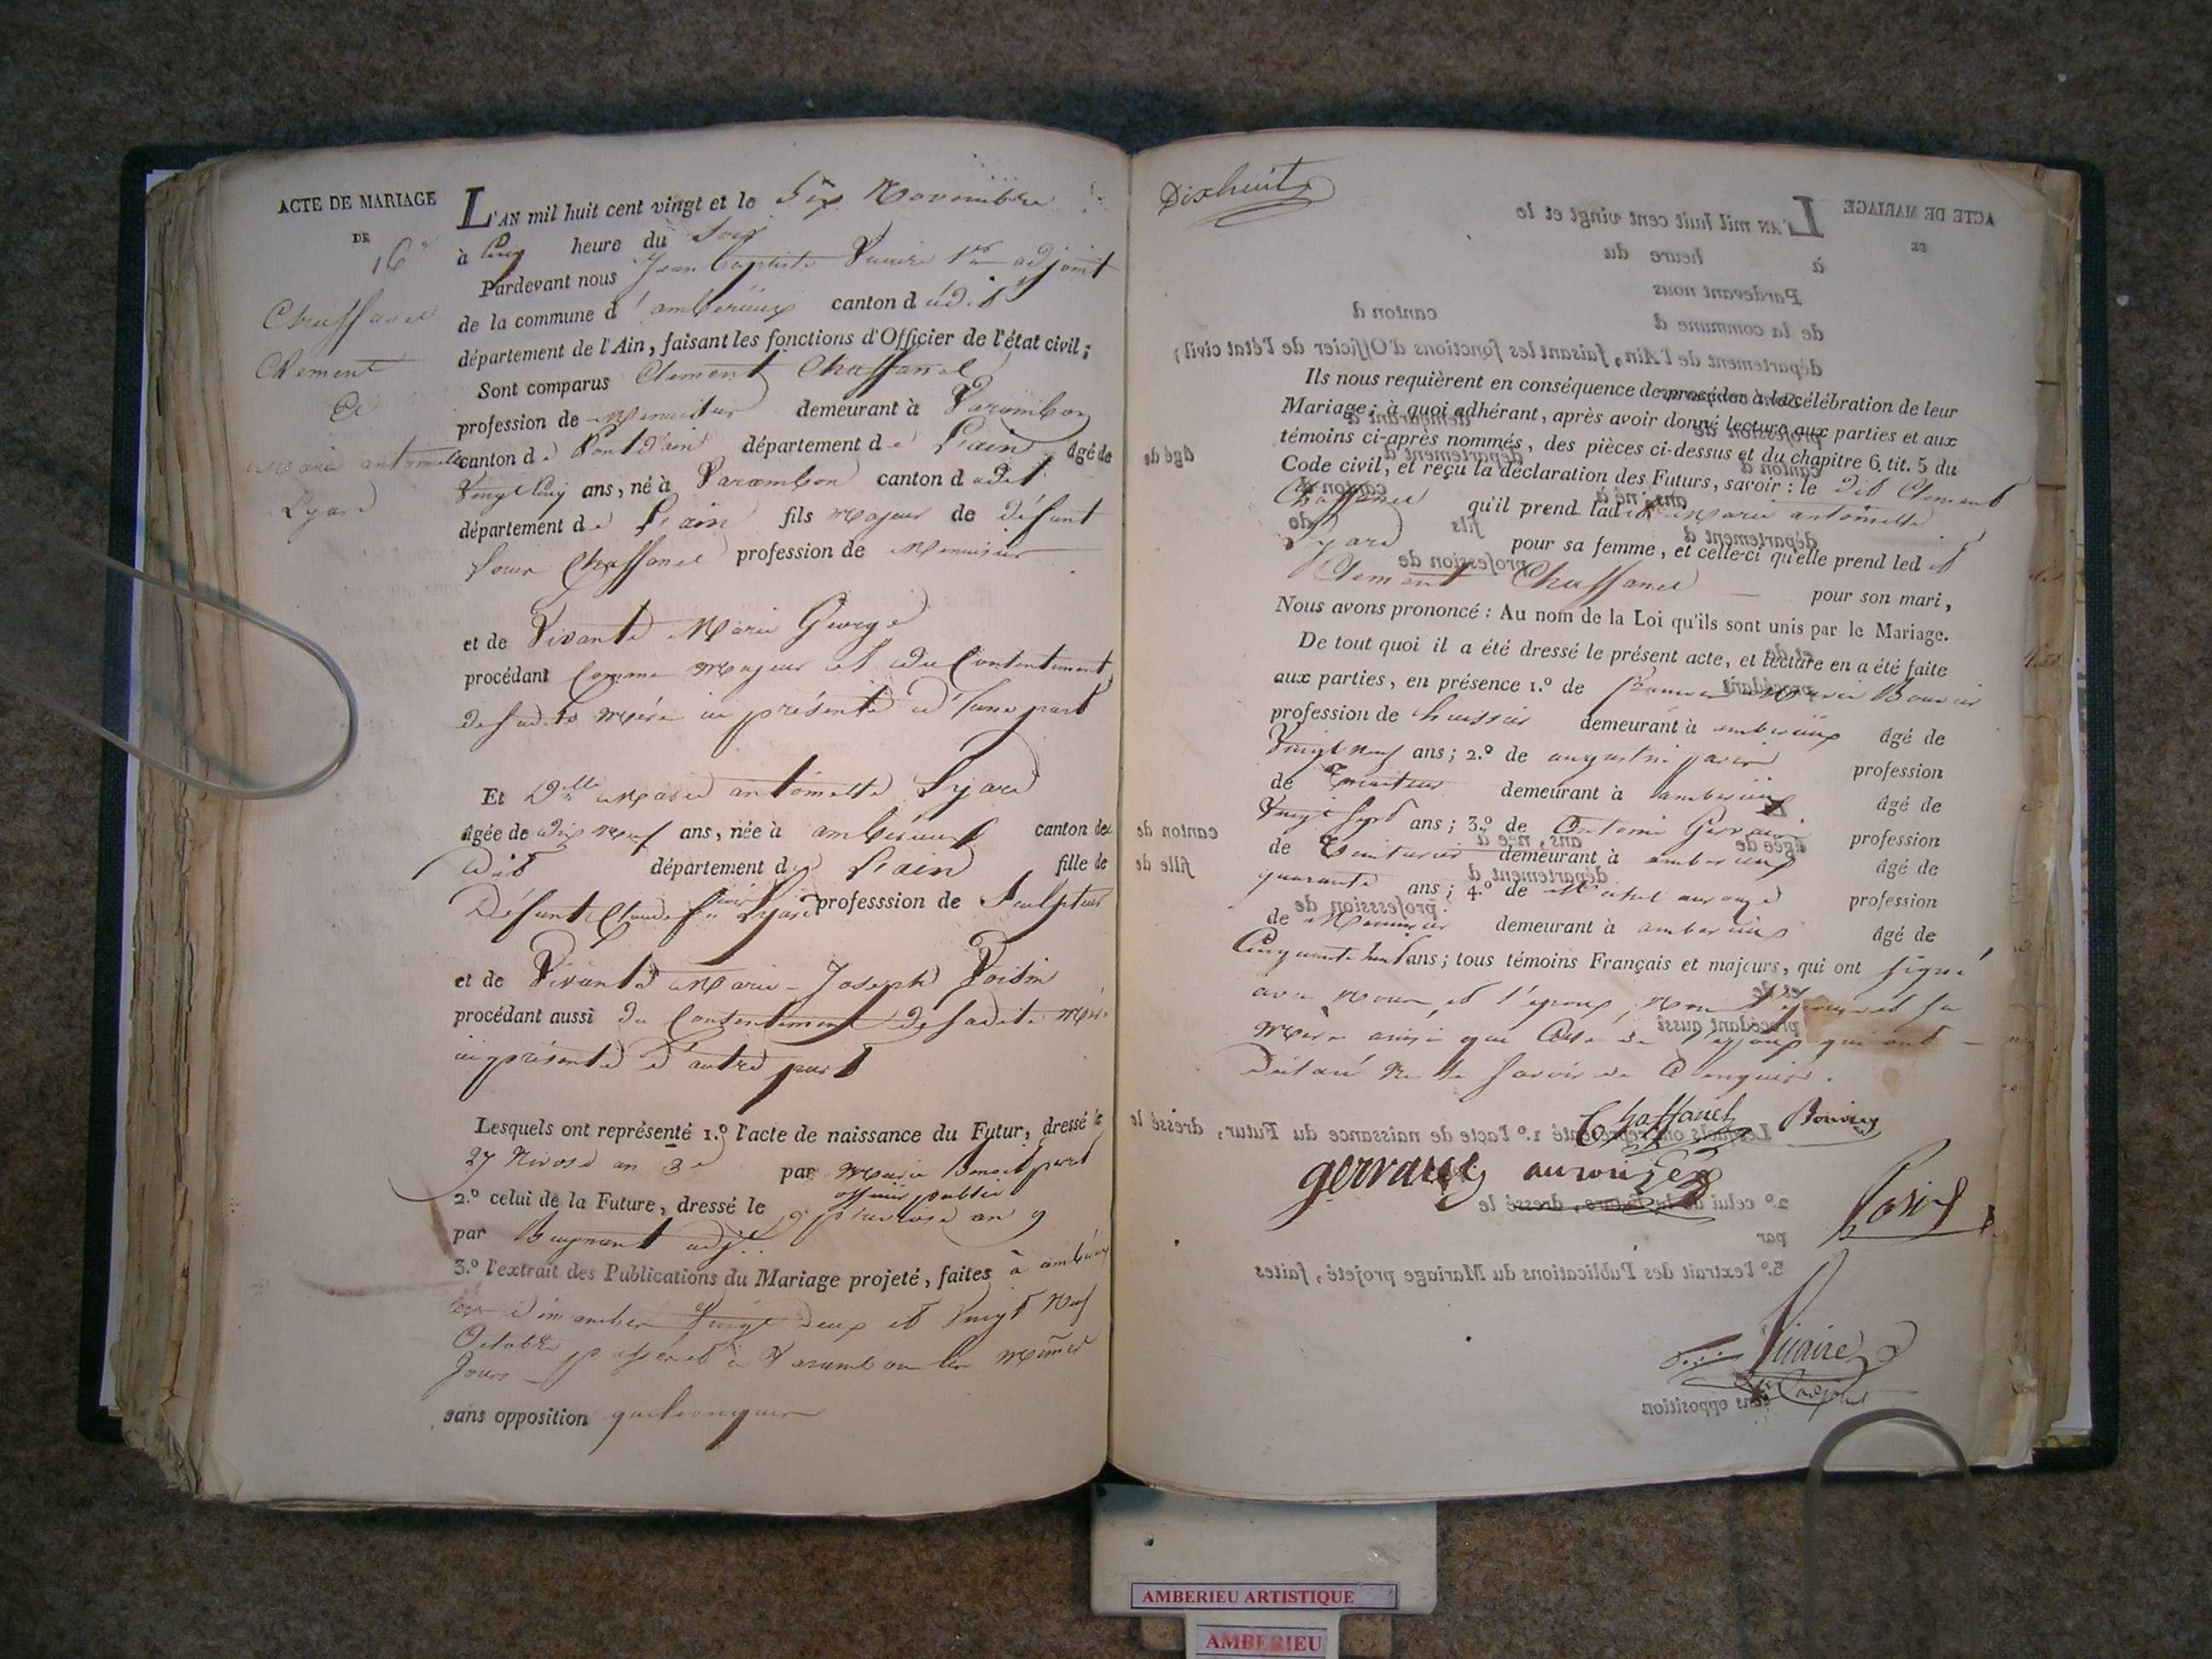 ACTE DE MARIAGE
DE
16e
Chaffanel
Clément
Et
Marie antoinette
Lyard
L'AN mil huit cent vingt et le Six Novembre
à Cinq heure du Soir
Pardevant nous Jean Baptiste Vicaire 1er adjoint
de la commune d'amberieux canton dudit
département de l'Ain, faisant les fonctions d'Officier de l'état civil;
Sont comparus Clement Chaffanel
profession de Menuisier demeurant à Varambon
canton de Pont d'ain département de L'ain âgé de
Vingt Cinq ans, né à Varambon canton dudit
département de L'ain fils Majeur de défunt
Louis Chaffanel profession de Menuisier
et de Vivante Marie George
procédant Comme Majeur et du Consentement
de sadite Mère ici présente d'une part
Et Dlle Marie antoinette Lyard
âgée de dix Neuf ans, née à amberieux canton de
dit département de L'ain fille de
Défunt Claude Lyard professsion de Sculpteur
et de Vivante Marie-Joseph Voisin
procédant aussi du Consentement de sadite Mère
ici présente d'autre part
Lesquels ont représenté 1.º l'acte de naissance du Futur, dressé le
27 Nivose an 3e par Marie Benoit
officier public
2.º celui de la Future, dressé le 9 pluviose an 9
par adjt
3.º l'extrait des Publications du Mariage projeté, faites à ambérieux
les dimanches Vingt deux et Vingt Neuf
Octobre passé et à Varambon les Mêmes
Jours
sans opposition quelconques
Dixhuit
Ils nous requièrent en conséquence de procéder à la célébration de leur
Mariage; à quoi adhérant, après avoir donné lecture aux parties et aux
témoins ci-après nommés, des pièces ci-dessus et du chapitre 6. tit. 5 du
Code civil, et reçu la déclaration des Futurs, savoir : le dit Clement
Chaffanel qu'il prend ladite Marie antoinette
Lyard pour sa femme, et celle-ci qu'elle prend ledit
Clement Chaffanel pour son mari,
Nous avons prononcé : Au nom de la Loi qu'ils sont unis par le Mariage.
De tout quoi il a été dressé le présent acte, et lecture en a été faite
aux parties, en présence 1.º de Marie Bouvier
profession de huissier demeurant à amberieux âgé de
Vingt Neuf ans; 2.º de augustin
profession
de demeurant à amberieux âgé de
Vingt Sept ans; 3.º de Antoine Gervais profession
de Teinturier demeurant à amberieux âgé de
quarante ans; 4.º de Michel aurouze profession
de Menuisier demeurant à amberieux âgé de
Cinquante huit ans; tous témoins Français et majeurs, qui ont signé
avec Nous, et l'epoux, Non l'épouse et sa
Mère ainsi que Celle de l'époux qui ont
Déclaré Ne le savoir de Ce enquises.
Chaffanel Bouvier
gervais aurouze
Vicaire